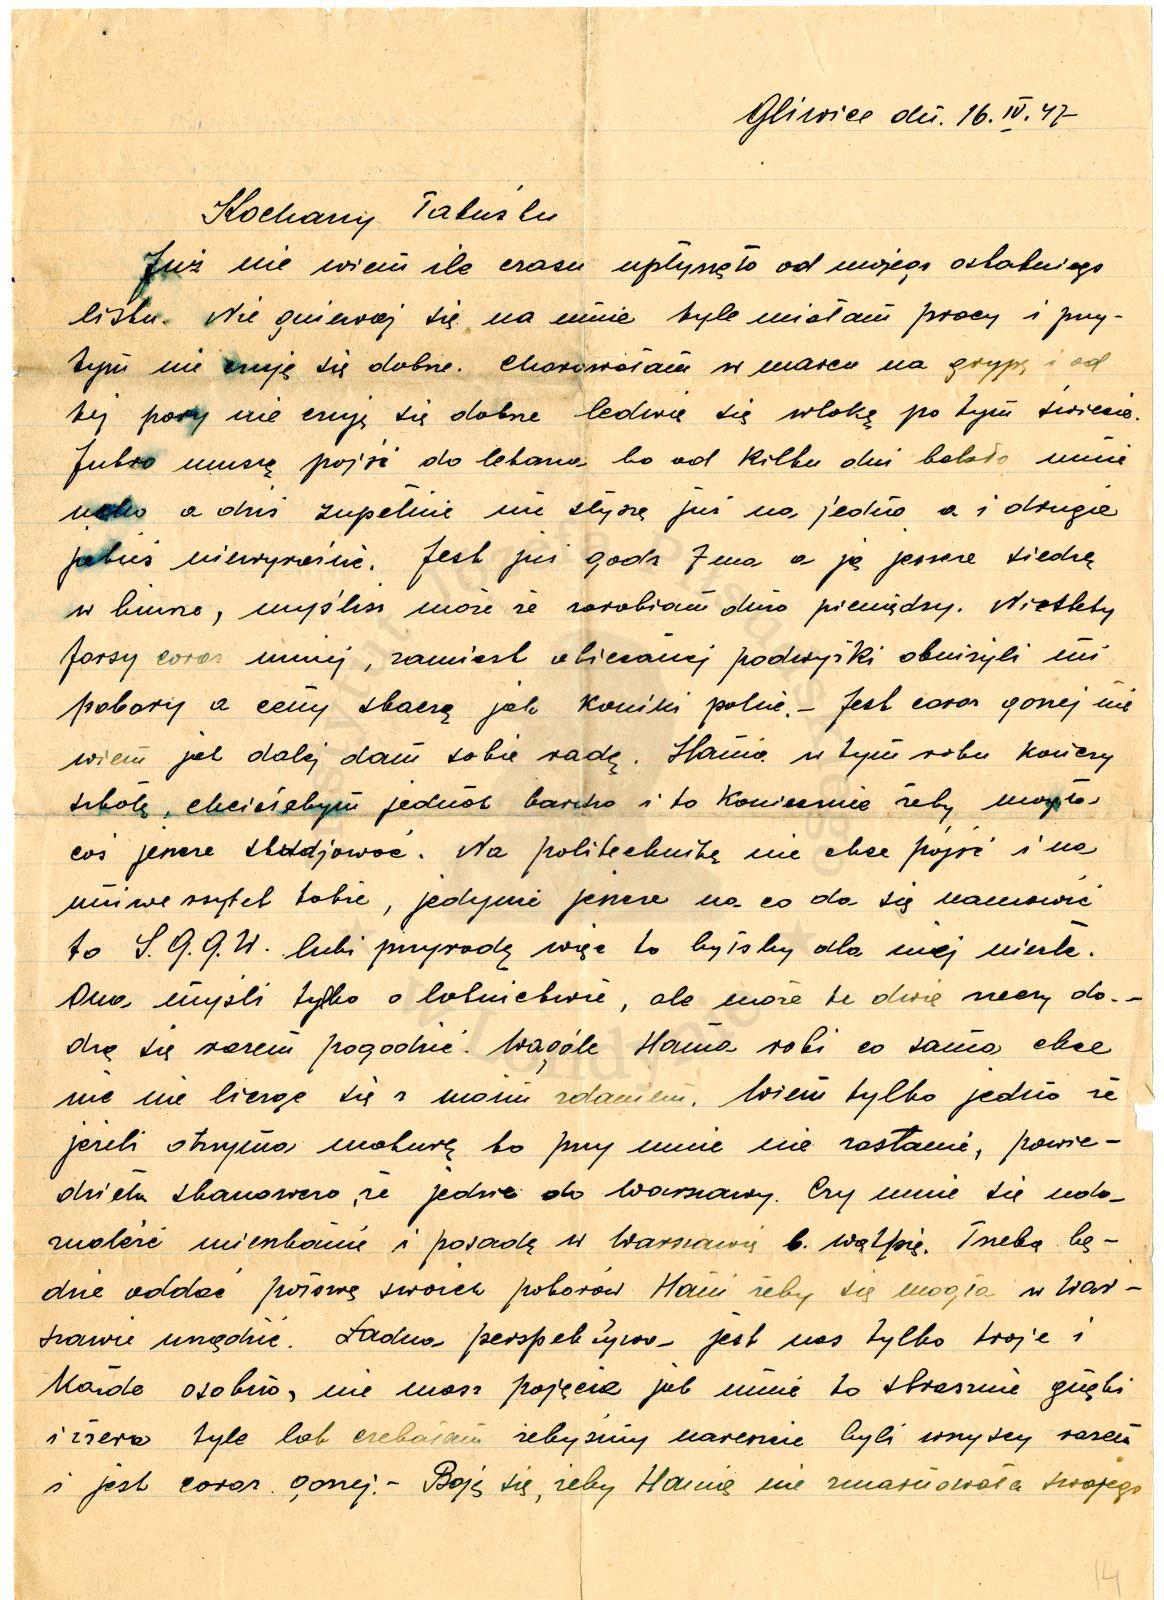 Gliwice dń. 16.IV.47
Kochany Tatuśku
Już nie wiem ile czasu upłynęło od mojego ostatniego
listu. Nie gniewaj się na mnie tyle miałam pracy i przy-
tym nie czuję się dobrze. Chorowałam w marcu na grypę i od
tej pory nie czuję się dobrze ledwie się włokę po tym świecie.
Jutro muszę pójść do lekarza bo od kilku dni bolało mnie
ucho a dziś zupełnie nie słyszę już na jedno a i drugie
jakoś niewyraźnie. Jest już godz 7ma a ja jeszcze siedzę
w biurze, myślisz może że zarabiam dużo pieniędzy. Niestety
forsy coraz mniej, zamiast obiecanej podwyżki obniżyli mi
pobory a ceny skaczą jak koniki polne.- Jest coraz gorzej nie
wiem jak dalej dam sobie radę. Hania w tym roku kończy
szkołę, chciałabym jednak bardzo i to koniecznie żeby mogła
coś jeszcze studjować. Na politechnikę nie chce pójść i na
uniwersytet także, jedynie jeszcze na co da się namówić
to S.G.G.W. lubi przyrodę więc to byłoby dla niej niezłe.
Ona myśli tylko o lotnictwie, ale może te dwie rzeczy da-
dzą się razem pogodzić. Wogóle Hania robi co sama chce
nic nie licząc się z moim zdaniem. Wiem tylko jedno że
jeżeli otrzyma maturę to przy mnie nie zostanie, powie-
działa stanowczo, że jedzie do Warszawy. Czy mnie się uda
znaleźć mieszkanie i posadę w Warszawie b. wątpię. Trzeba bę-
dzie oddać połowę swoich poborów Hani żeby się mogła w War-
szawie urządzić. Ładna perspektywa jest nas tylko troje i
każde osobno, nie masz pojęcia jak mnie to strasznie gnębi
i zżera tyle lat czekałam żebyśmy nareszcie byli wszyscy razem
i jest coraz gorzej.- Boję się, żeby Hania nie zmarnowała swojego
14